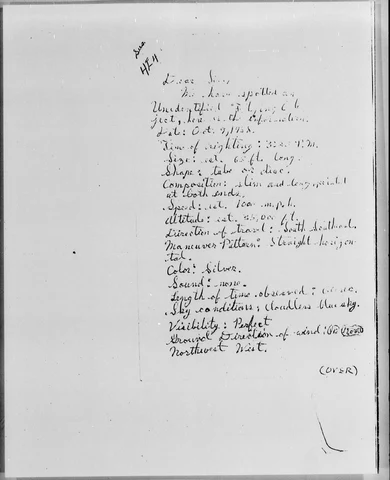 Dear Sirs,
We have spotted an
Unidentified Flying Ob
ject, here is the information.
Date: Oct. 7, 
Time of sighting: P.M.
Size: est. 65 ft. long.
Shape: tube or disc.
Composition: slim and long pointed
at both ends.
Speed: est. 1000 m.p.h.
Altitude: est. 55,000 ft.
Direction of travel: South Southeast.
Maneuver Pattern: Straight horizon-
tal.
Color: Silver.
Sound: none.
Length of time observed: sec.
Sky conditions: cloudless blue sky.
Visibility: Perfect
Ground Direction of wind:
Northwest West.
(OVER)